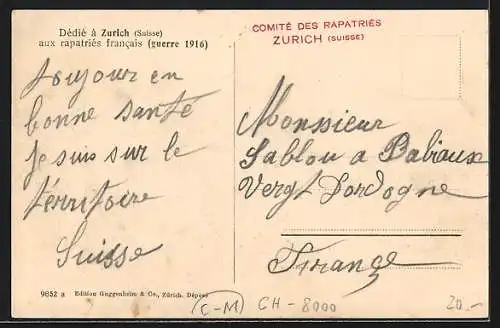 Dédié à Zurich (Suisse)
aux rapatriés français (guerre 1916)
COMITÉ DES RAPATRIÉS
ZURICH (SUISSE)
toujour en
bonne santé
je suis sur le
térritoire
Suisse
Monssieur
Sablou a Babiaux
Vergt Dordogne
9852 a Edition Guggenheim & Co., Zürich. Déposé
(C-M) CH-8000 20.-